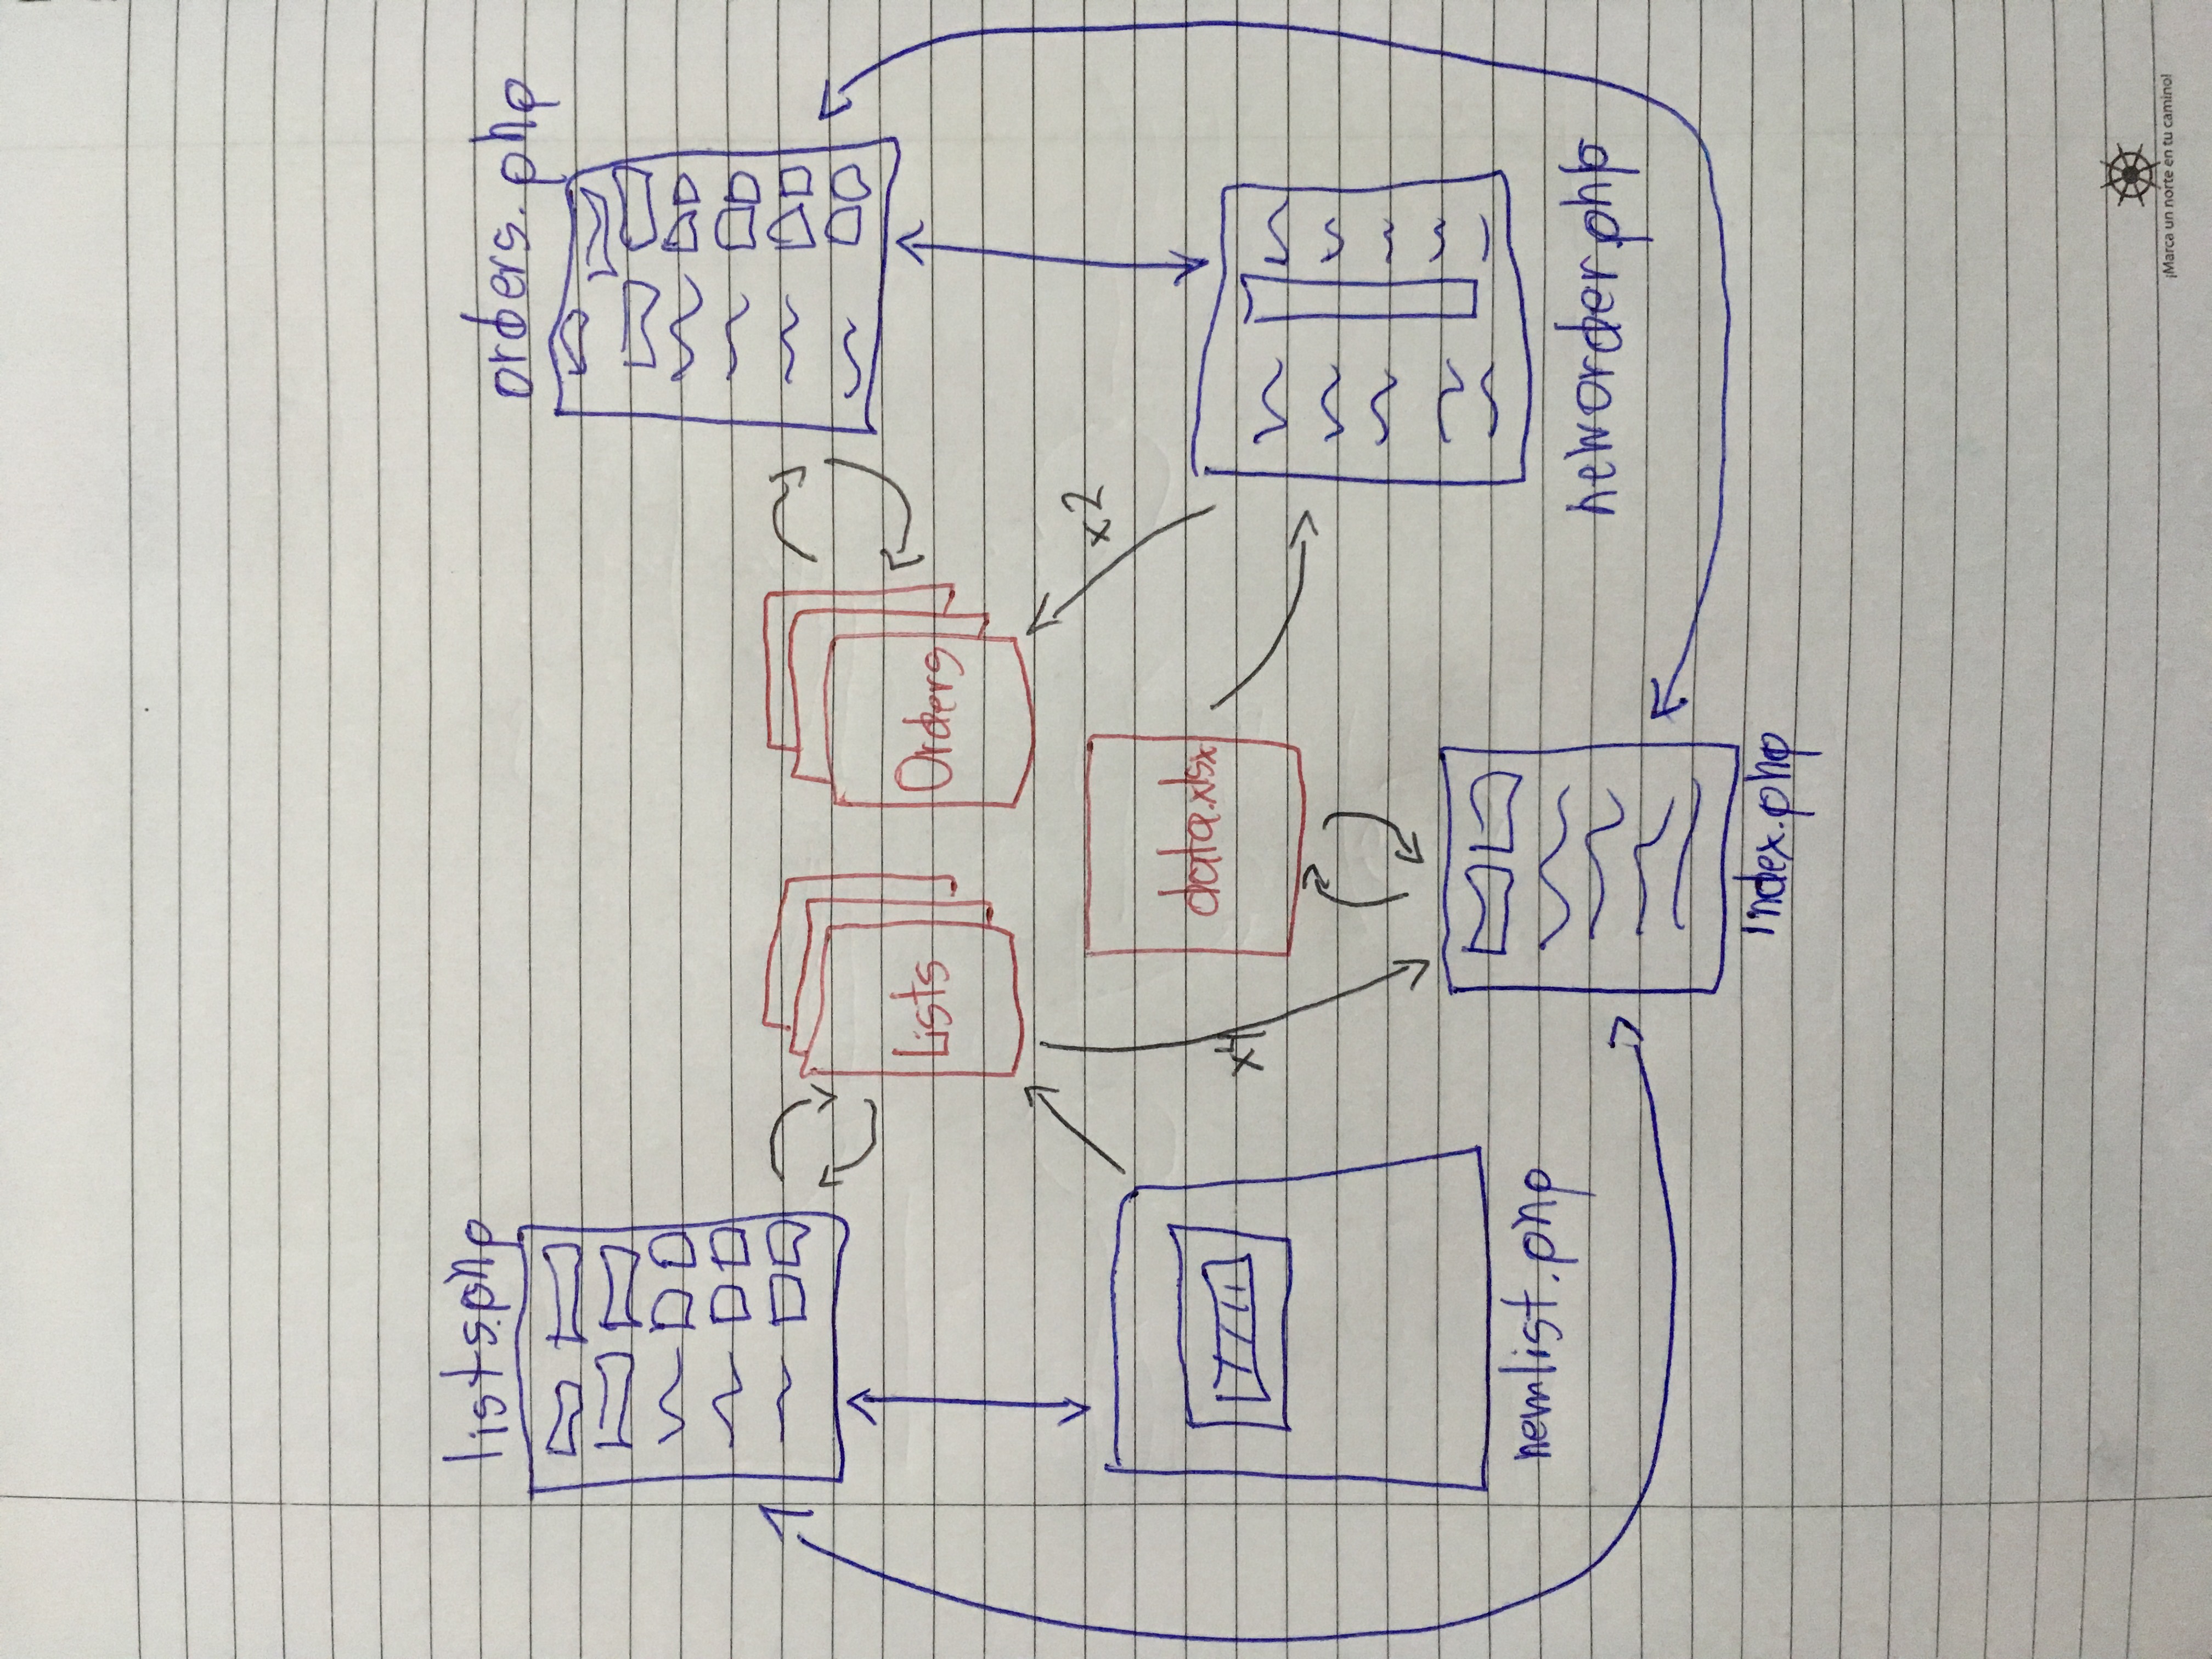 lists.php
orders.php
Lists
Orders
x2
data.xlsx
x4
newlist.php
neworder.php
index.php
¡Marca un norte en tu camino!